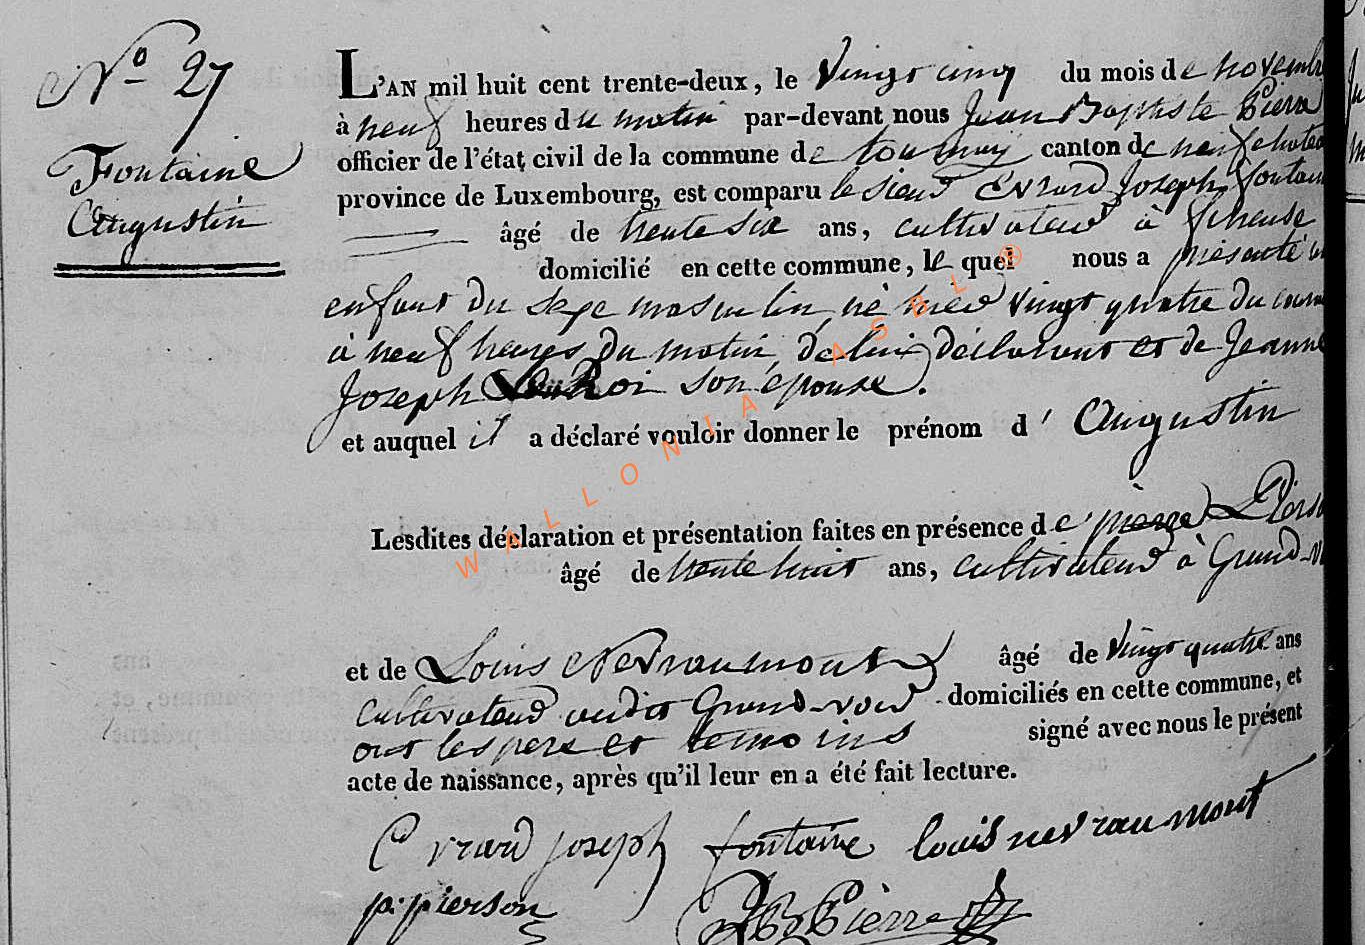 No 27
Fontaine
Augustin
L'AN mil huit cent trente-deux, le Vingt cinq du mois de novembre
à neuf heures du matin par-devant nous Jean Baptiste Pierre
officier de l'état civil de la commune de tournay canton de neufchateau
province de Luxembourg, est comparu le sieur Evrard Joseph fontaine
âgé de trente six ans, cultivateur à
domicilié en cette commune, le quel nous a présenté un
enfant du sexe masculin, né hier vingt quatre du courant
à neuf heures du matin, de lui déclarant et de Jeanne
Joseph Roi son épouse.
et auquel il a déclaré vouloir donner le prénom d' Augustin
Lesdites déclaration et présentation faites en présence de pierre Pierson
âgé de trente huit ans, cultivateur à Grand-voir
et de Louis Nevraumont âgé de vingt quatre ans
cultivateur audit Grand-voir domiciliés en cette commune, et
ont les père et témoins signé avec nous le présent
acte de naissance, après qu'il leur en a été fait lecture.
Evrard joseph fontaine louis nevraumont
p. pierson JB Pierre
WALLONIA ASBL ®